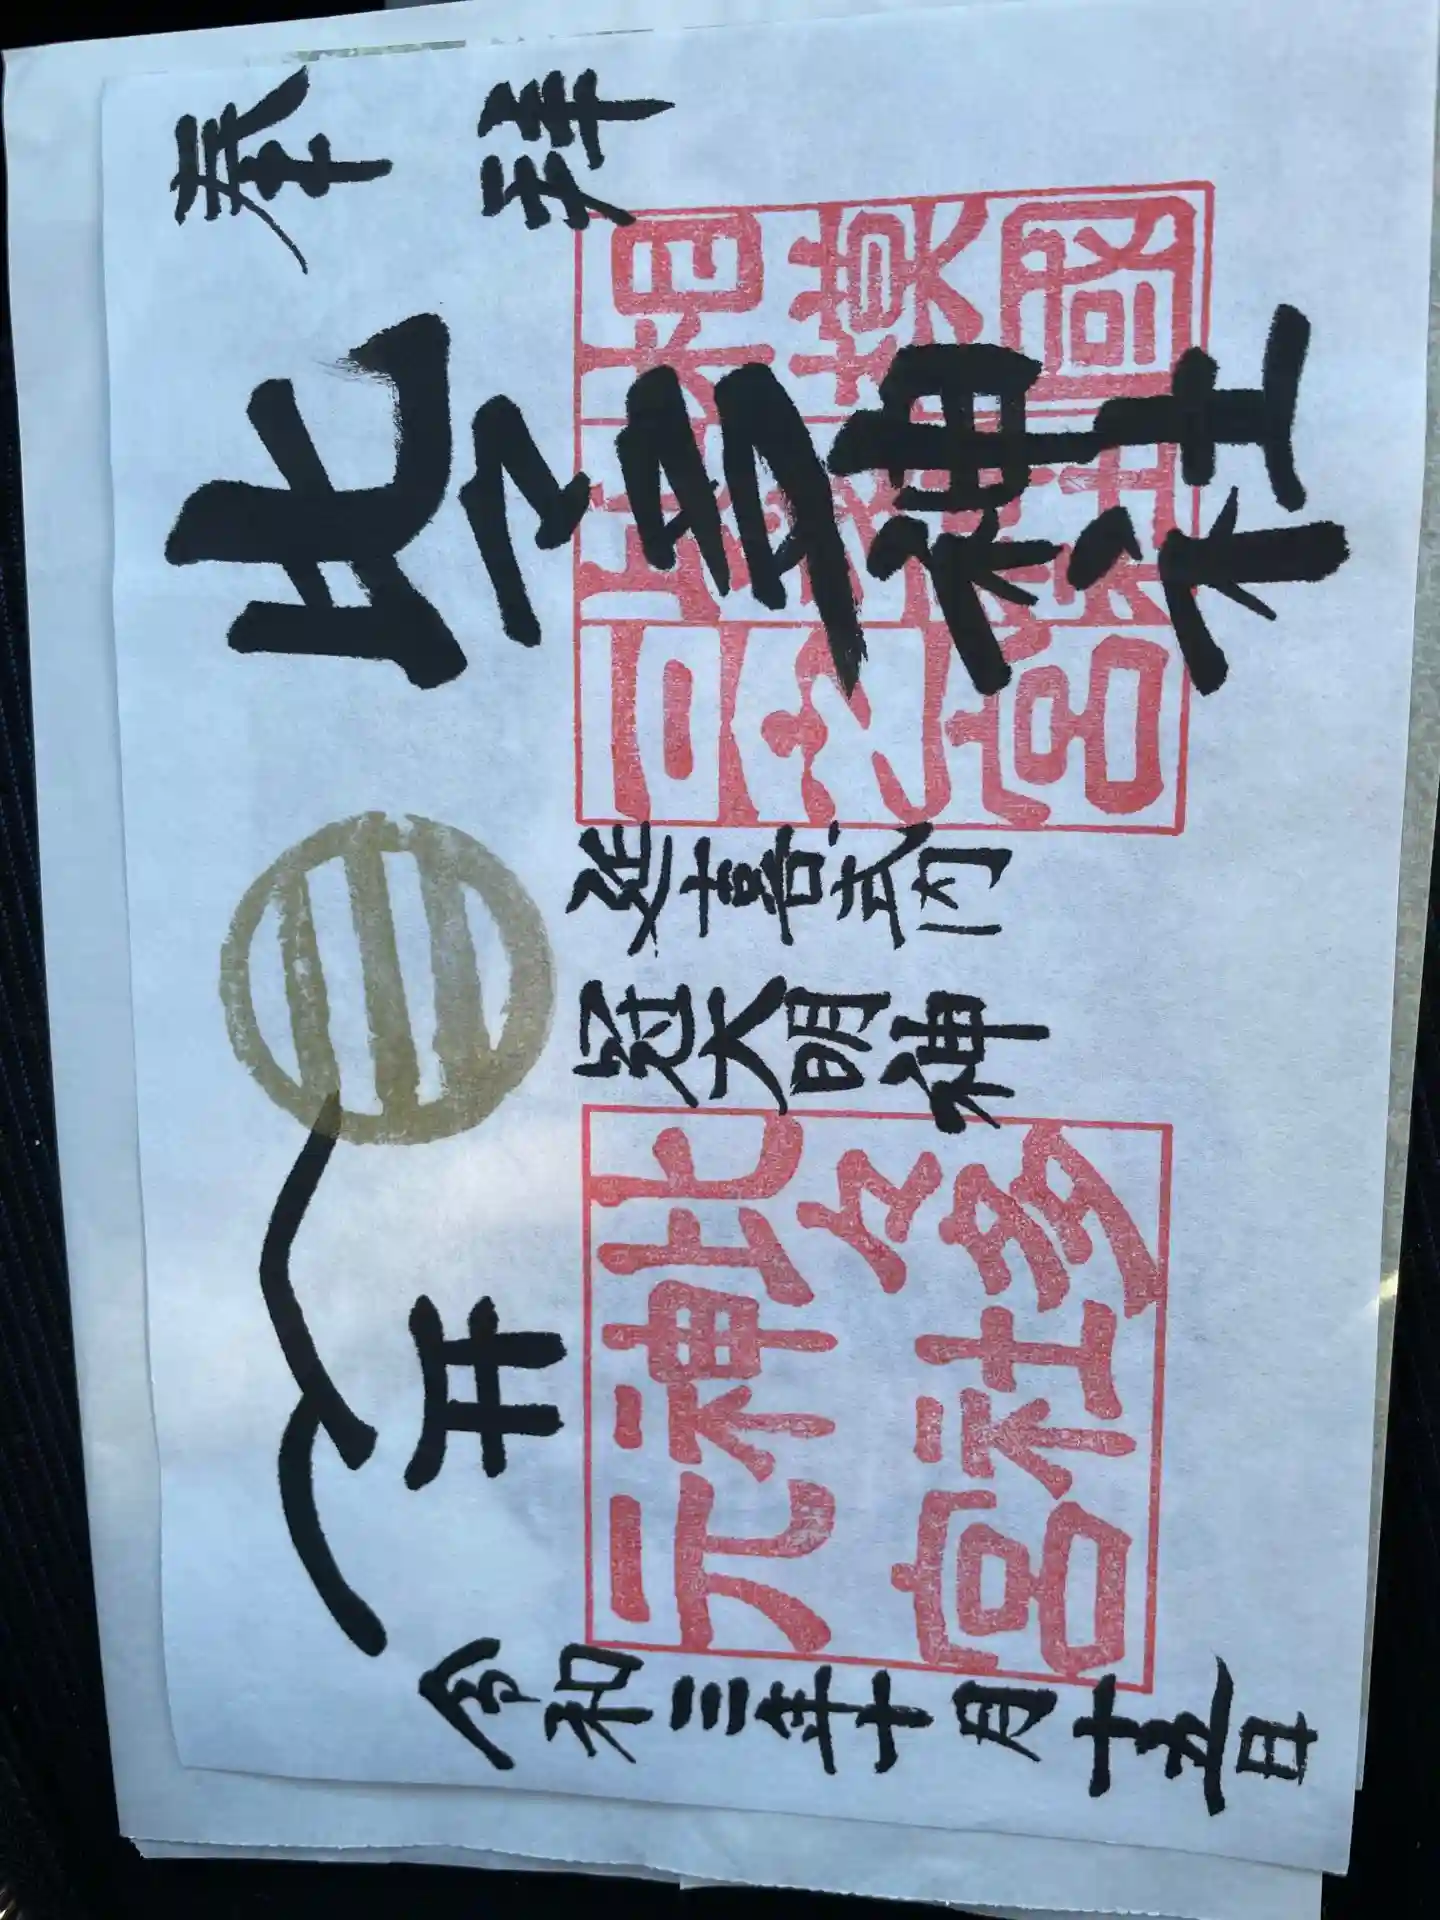 奉拝
相模國
比々多神社
延喜式内
冠大明神
比々多
神社
元宮
令和三年十月十五日